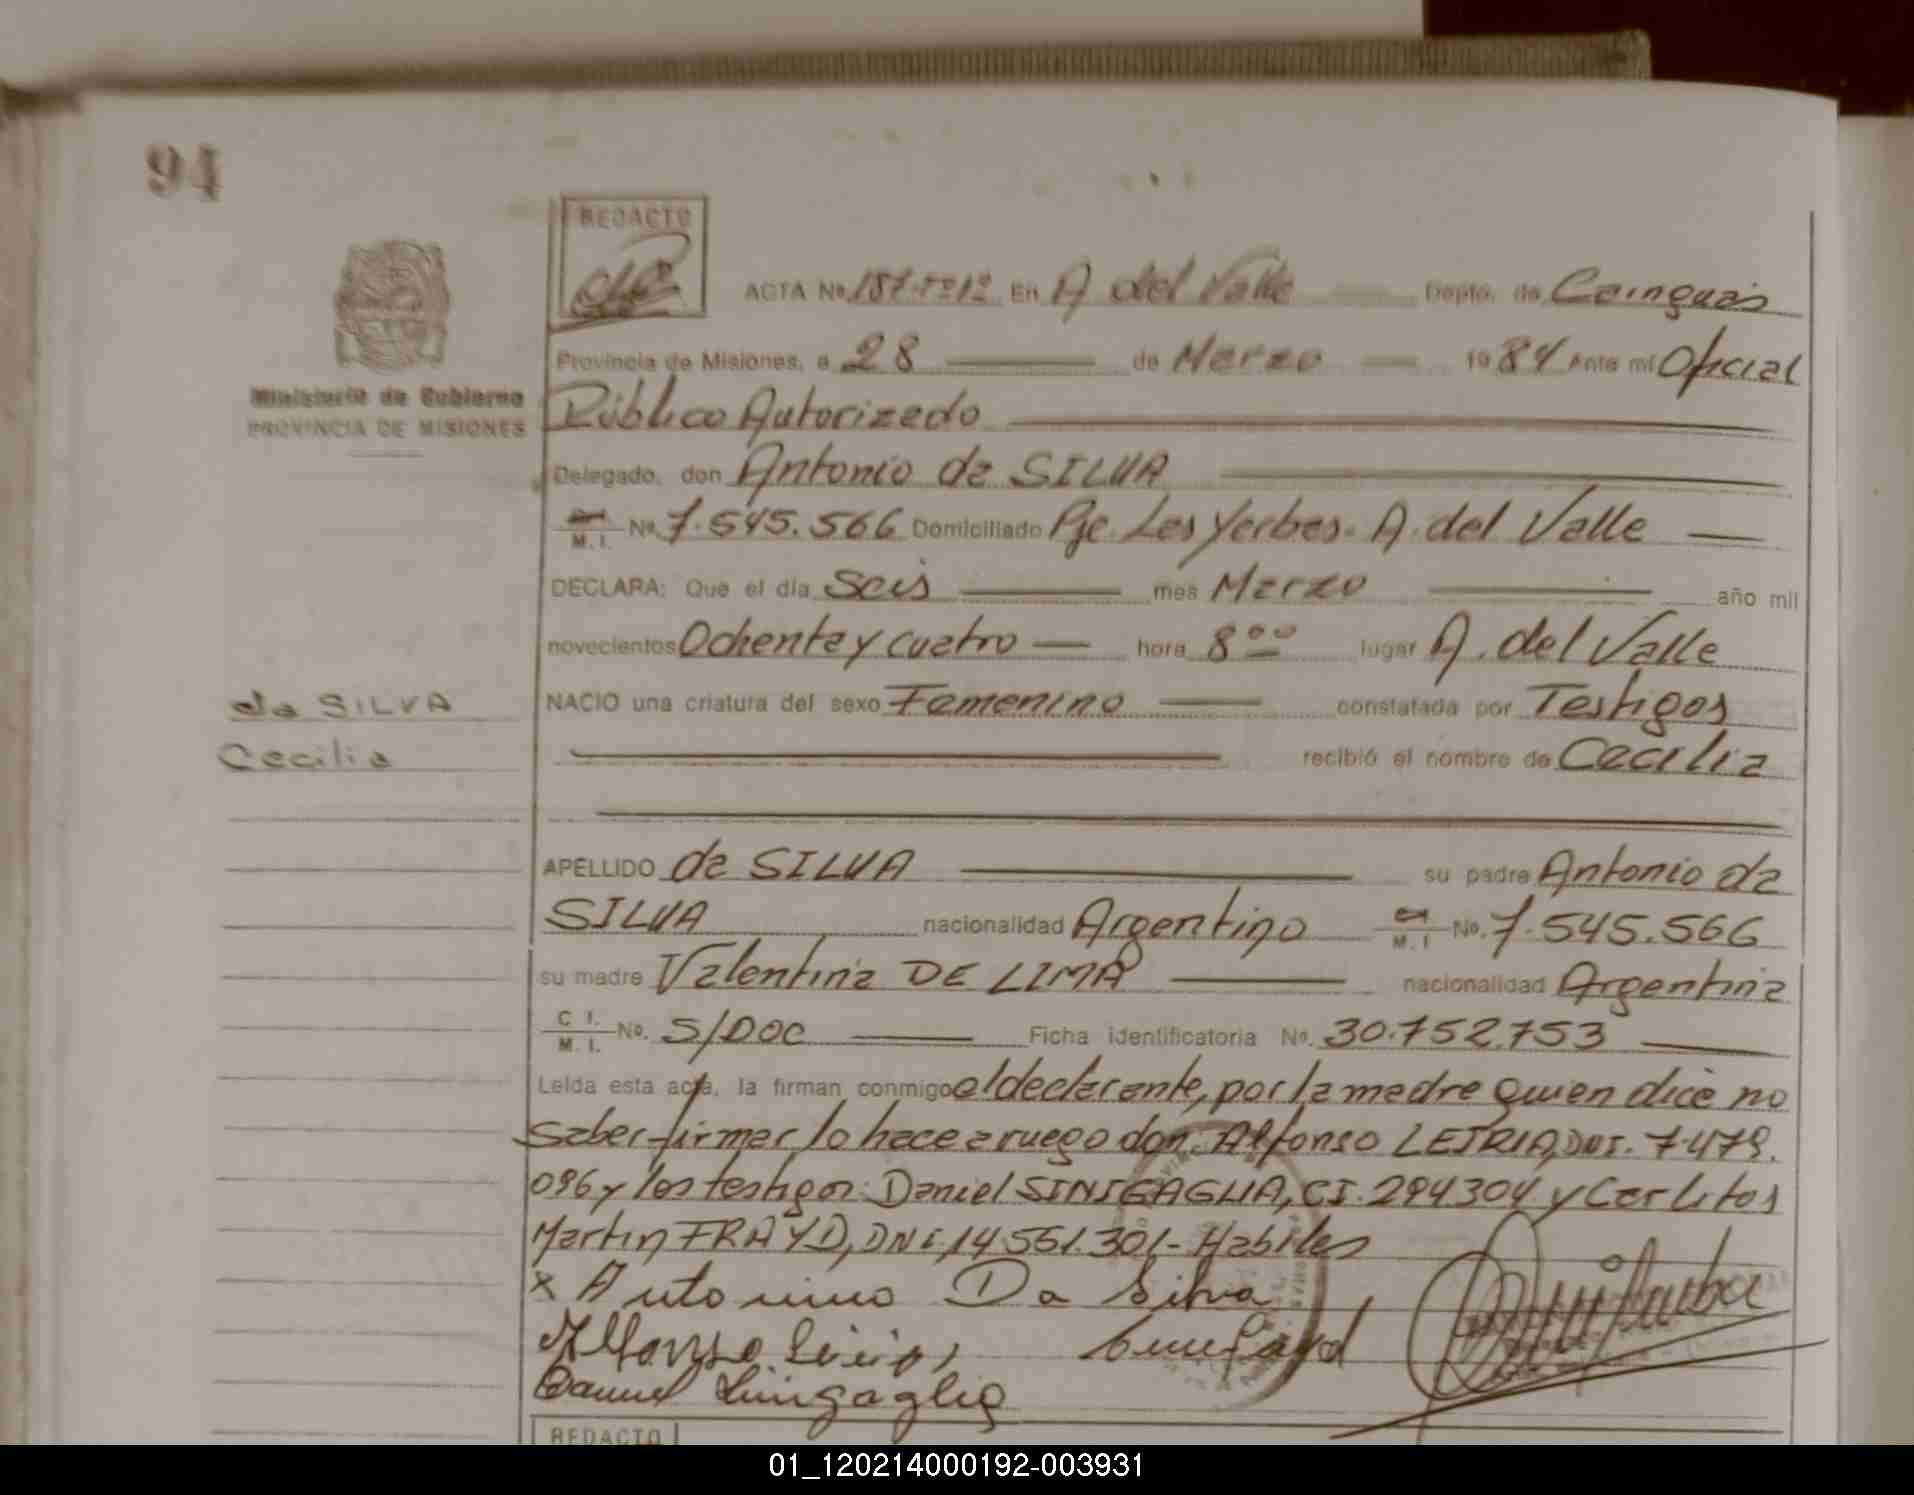 94
REDACTO
ACTA No. 157-Tº1º En A del Valle Depto. de Cainguás
Provincia de Misiones, a 28 de Marzo 1984 Ante mí Oficial
Ministerio de Gobierno
PROVINCIA DE MISIONES
Público Autorizado
Delegado, don Antonio da SILVA
M. I. No. 7.545.566 Domiciliado Pje. Las Yerbas. A. del Valle
DECLARA: Que el día Seis mes Marzo año mil
novecientos Ochenta y cuatro hora 8ºº lugar A. del Valle
da SILVA
NACIO una criatura del sexo Femenino constatada por Testigos
Cecilia
recibió el nombre de Cecilia
APELLIDO da SILVA su padre Antonio da
SILVA nacionalidad Argentino M. I No. 7.545.566
su madre Valentina DE LIMA nacionalidad Argentina
C I. M. I. No. S/DOC Ficha identificatoria No. 30.752.753
Leída esta acta, la firman conmigo el declarante, por la madre quien dice no
saber firmar lo hace a ruego don: Alfonso LEIRIA, DNI. 7.479.
096 y los testigos: Daniel SINIGAGLIA, CI. 294304 y Carlitos
Martin FRAYD, DNI. 14.561.301- Habiles
x Antonino Da Silva
REDACTO
01_120214000192-003931